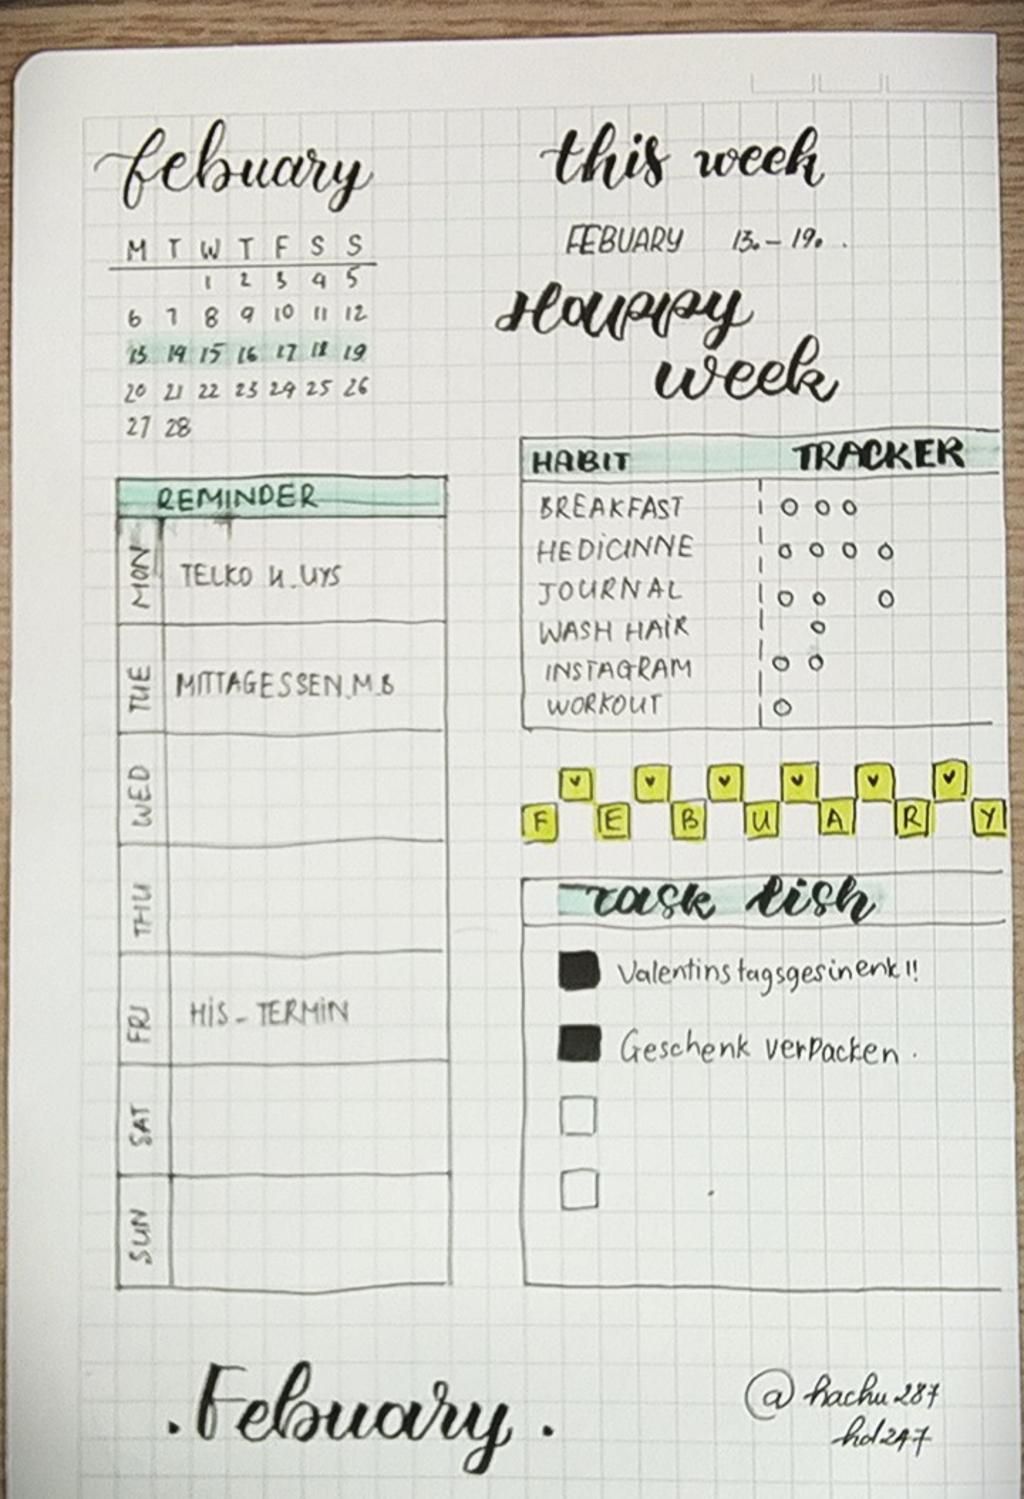 febuary
M T W T F S S
1 2 3 4 5
6 7 8 9 10 11 12
13 14 15 16 17 18 19
20 21 22 23 24 25 26
27 28
REMINDER
MON
TELKO U_UYS
TUE
MITTAGESSEN_M_B
WED
THU
FRI
HIS_TERMIN
SAT
SUN
this week
FEBUARY 13.-19. .
Happy
week
HABIT TRACKER
BREAKFAST
MEDICINNE
JOURNAL
WASH HAIR
INSTAGRAM
WORKOUT
F E B U A R Y
Task lish
Valentinstagsgesinenk!!
Geschenk verpacken.
.Febuary.
@hachu287
hd247